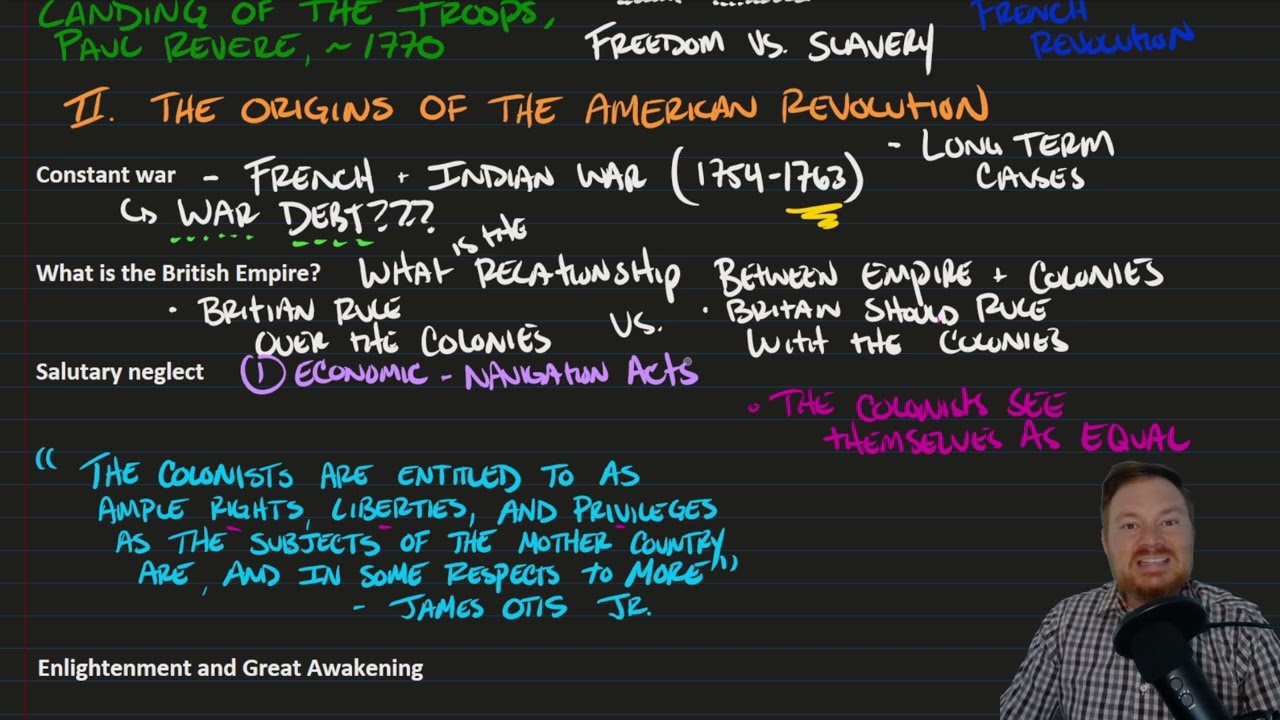 LANDING OF THE TROOPS,
PAUL REVERE, ~ 1770
FREEDOM VS. SLAVERY
FRENCH
REVOLUTION
II. THE ORIGINS OF THE AMERICAN REVOLUTION
Constant war - FRENCH + INDIAN WAR (1754-1763)
- LONG TERM
CAUSES
↳ WAR DEBT???
What is the British Empire? WHAT IS THE RELATIONSHIP BETWEEN EMPIRE + COLONIES
• BRITIAN RULE
OVER THE COLONIES
VS.
• BRITAN SHOULD RULE
WITH THE COLONIES
Salutary neglect ① ECONOMIC - NAVIGATION ACTS
• THE COLONISTS SEE
THEMSELVES AS EQUAL
"THE COLONISTS ARE ENTITLED TO AS
AMPLE RIGHTS, LIBERTIES, AND PRIVILEGES
AS THE SUBJECTS OF THE MOTHER COUNTRY
ARE, AND IN SOME RESPECTS TO MORE"
- JAMES OTIS JR.
Enlightenment and Great Awakening